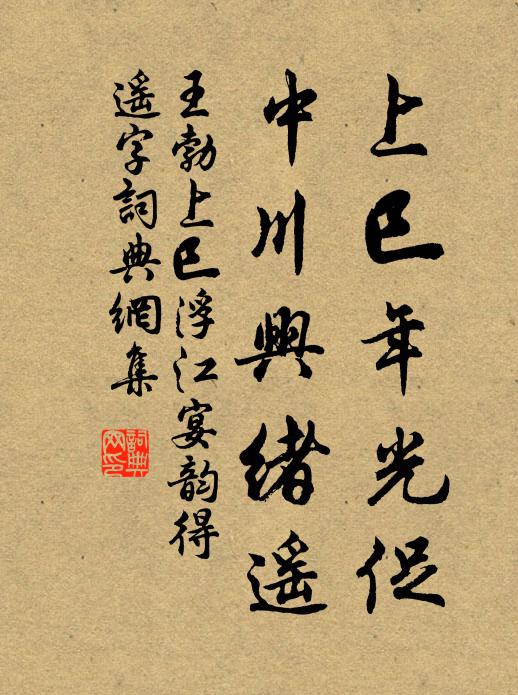 上巳年光促
中川興緒遥
王勃上巳浮江宴韵得
遥字詞典網集
詞典網印